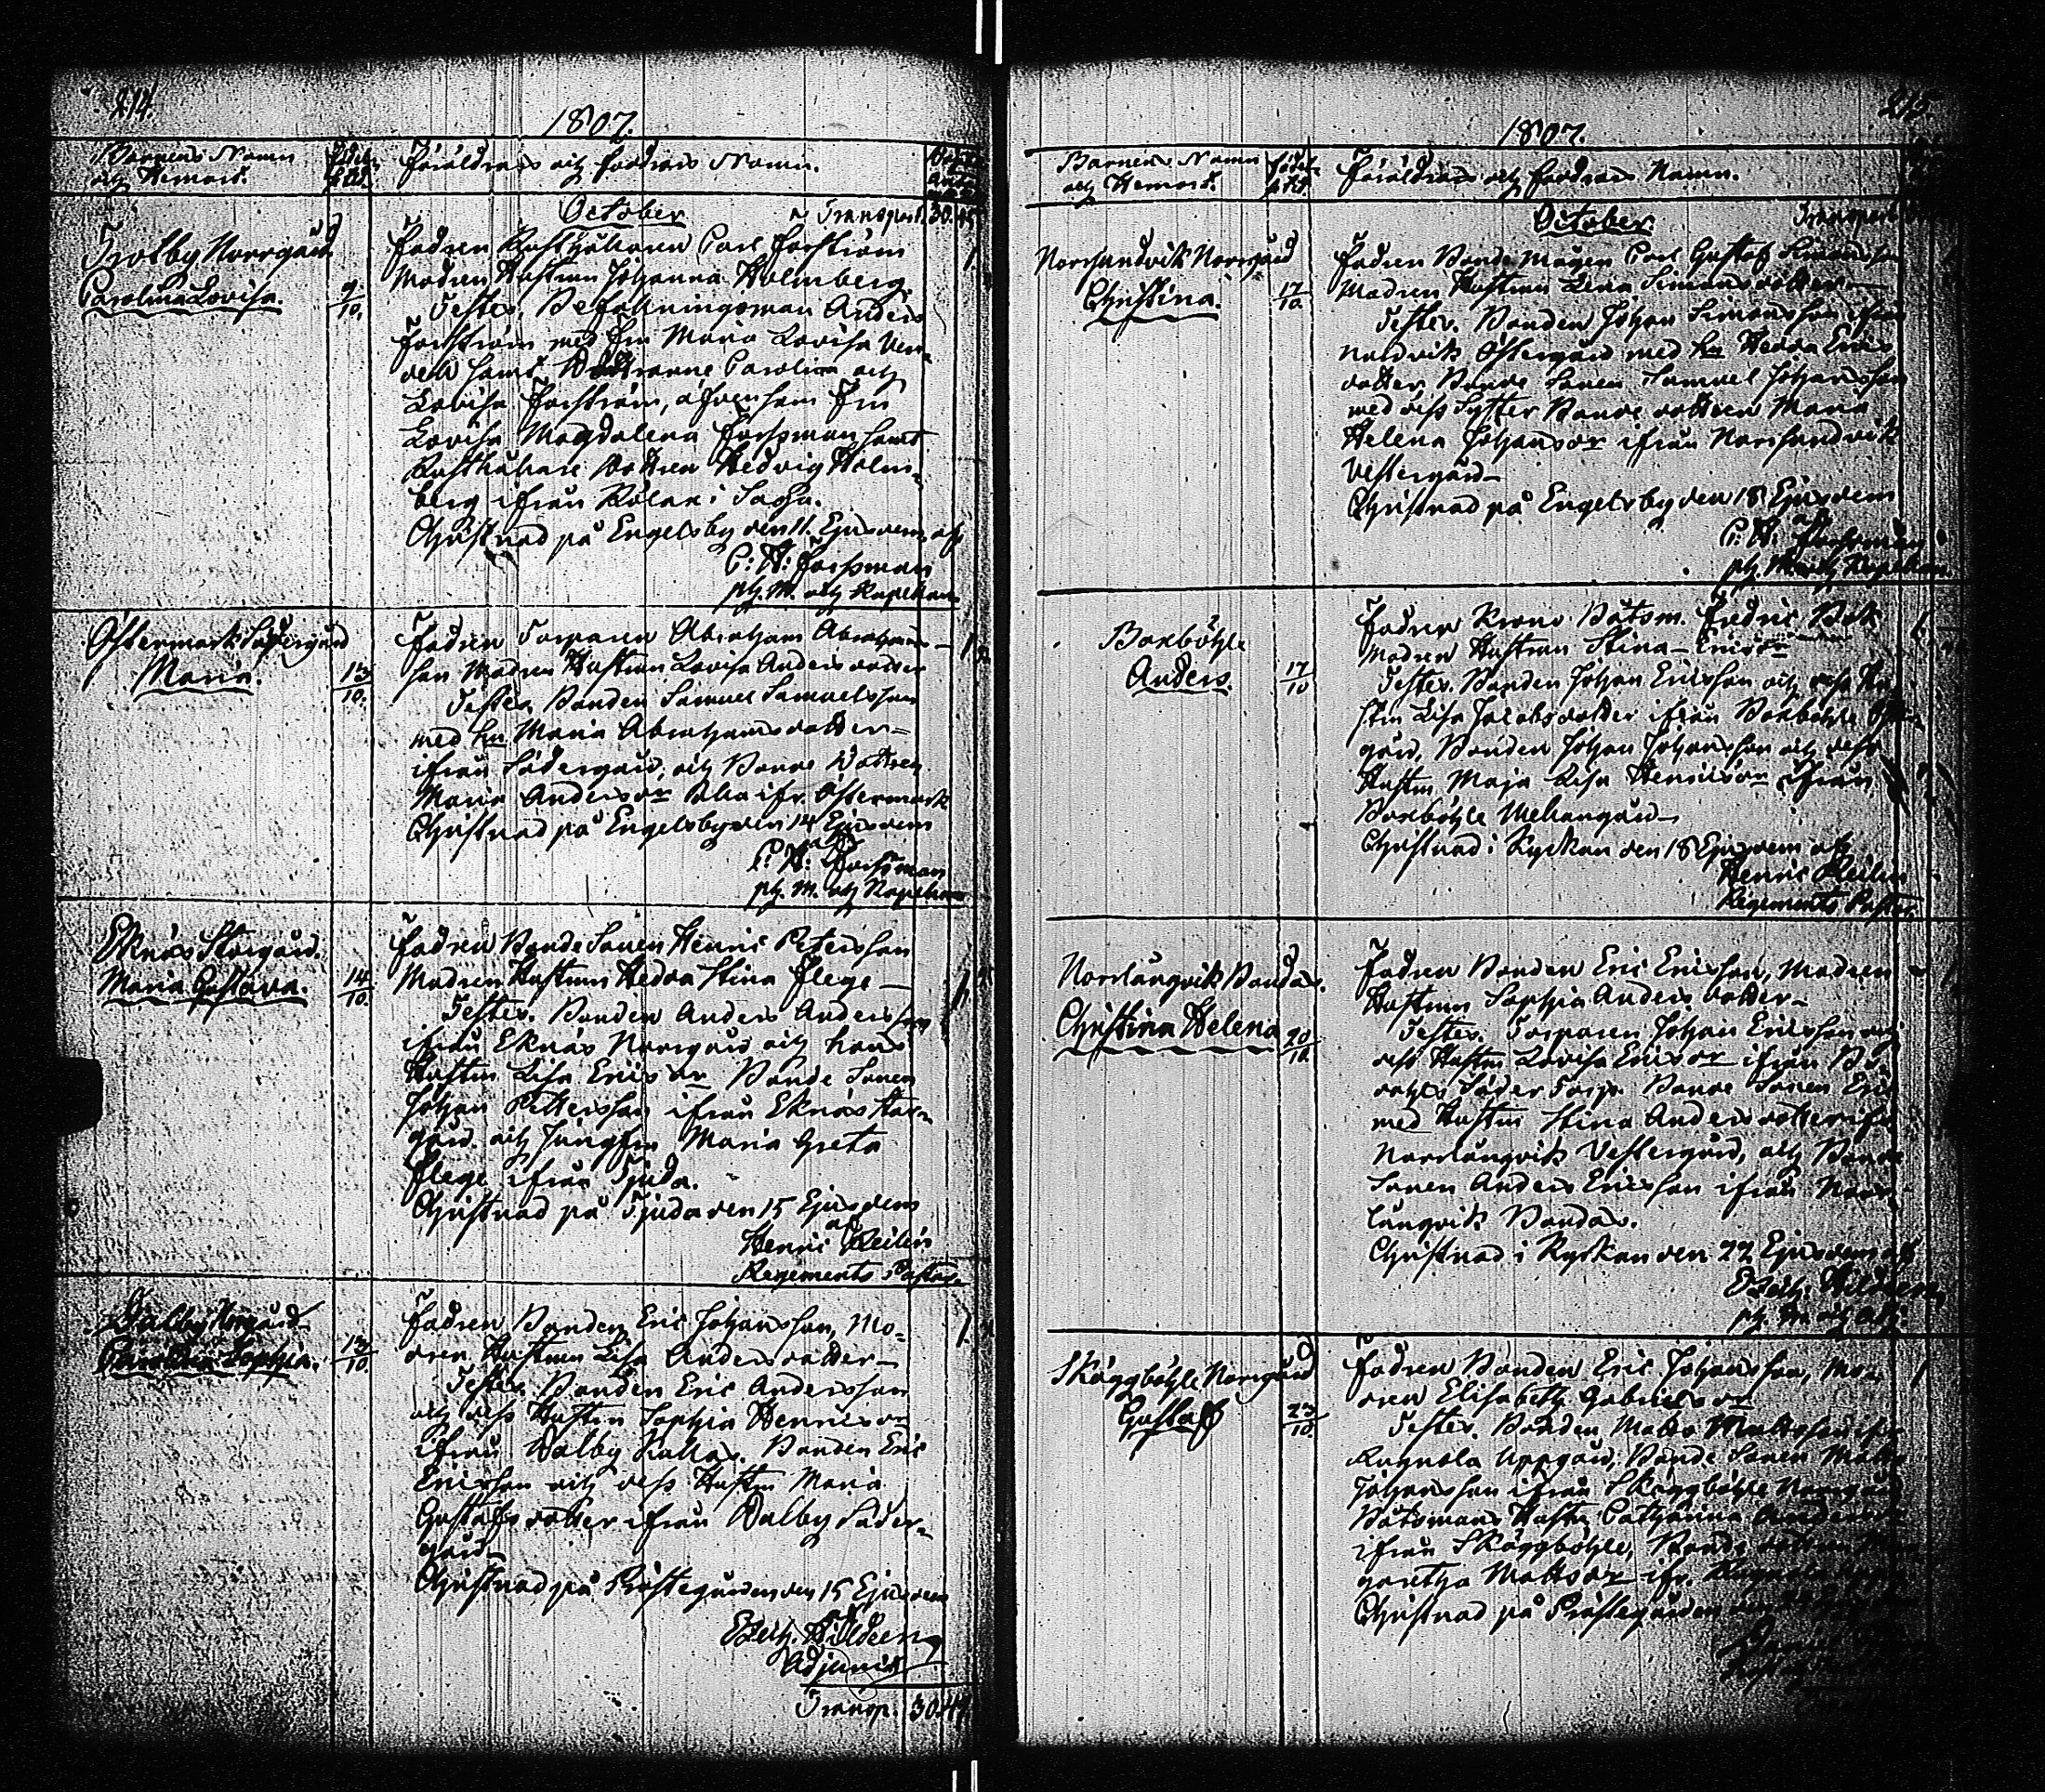 214.
1807.
Barnens Namn
och Hemvist.
födelse
tid.
föräldrars och faddrars Namn.
October
Transport. 30.
Trotby Norrgård
Carolina Lovisa.
9
10.
fadren Rusthållaren Carl forström
Modren Hustrun Johanna Holmberg.
Testes, Befallningsman Anders
forström med fru Maria Lovisa Ven-
dell samt Döttrarne Carolina och
Lovisa forström, äfvensom fru
Lovisa Magdalena forssman samt
Rusthållare Dottren Hedvig Holm-
berg ifrån Rålax i
Christnad på Engelsby den 11. Ejusdem, af
C: H: forssman
ph. M. och Kapellan
Östermark Södergård
Maria.
13
10.
fadren Torparen Abraham Abrahams-
son Modren Hustrun Lovisa Andersdotter
Testes Bonden Samuel Samuelsson
med hu Maria Abrahamsdotter
ifrån Södergård, och Bonde Dottren
Maria Andersdr ifr. Östermark
Christnad på Engelsby den 14 Ejusdem
af
C: H: forssman
ph. M. och Kapellan
Eknäs Storgård.
Maria Gustava.
14
10.
fadren Bonde Sonen Henric Petersson
Modren Hustrun Hedda Stina flege
Testes. Bonden Anders Andersson
ifrån Eknäs Norrgård och hans
Hustru Lisa Ericsdr Bonde Sonen
Johan Pettersson ifrån Eknäs Stor-
gård. och Jungfru Maria Greta
flege ifrån Tjuda.
Christnad på Tjuda den 15 Ejusdem
af
Henric Heilin
Regements Pastor
Dalby Norrgård
Carolina Sophia.
13
10.
fadren Bonden Eric Johansson, Mo-
dren Hustrun Lisa Andersdotter
Testes Bonden Eric Andersson
och dess Hustru Sophia Henricsdr
ifrån Dalby Kallas. Bonden Eric
Ericsson och dess Hustru Maria
Gustafsdotter ifrån Dalby Söder-
gård
Christnad på Prästegården den 15 Ejusdem
Ezech. Hildeen
Adjunct
Transp. 30.
215.
1807.
Barnens Namn
och Hemvist.
födel.
tid
föräldrars och faddrars Namn.
October
Transport
Norrsundvik Norrgård
Christina.
17
10
fadren Bonde Mågen Carl Gustaf Simonsson
Modren Hustrun Lena Simonsdotter
Testes. Bonden Johan Simonsson ifrån
Nordvik Östergård med hu Hedda Erics
dotter Bonde Sonen Samuel Johansson
med dess Syster Bonde dottren Maria
Helena Johansdr ifrån Norrsundvik
Vestergård
Christnad på Engelsby den 18 Ejusdem
af
C: H: forssman
ph. M. och Kapellan
Boxböhle
Anders.
17
10
fadren Krono Båtsm. fredric Bök
Modren Hustrun Stina Ericsdr
Testes. Bonden Johan Ericsson och dess Hu-
stru Lisa Jacobsdotter ifrån Boxböhle
gård, Bonden Johan Johansson och dess
Hustru Maja Lisa Henricsdr ifrån
Boxböhle Mellangård
Christnad i Kyrkan den 18 Ejusdem af
Henric Heilin
Regements Pastor
Norrlångvik Bondas.
Christina Helena
20
10.
fadren Bonden Eric Ericsson, Modren
Hustrun Sophia Andersdotter
Testes. Torparen Johan Ericsson och
dess Hustru Lovisa Ericsdr ifrån
Söder Torp. Bonde Sonen Eric
med Hustru Stina Andersdotter ifr.
Norrlångvik Vestergård, och Bonde
Sonen Anders Ericsson ifrån Norr-
långvik Bondas.
Christnad i Kyrkan den 22 Ejusdem af
Ezech. Hildeen
ph. M. och Adj.
Skäggböhle Norrgård
Gustaff
23
10.
fadren Bonden Eric Johansson, Mo-
dren Elisabeth Gabrielsdr
Testes. Bonden Matts Mattsson ifr.
Rugnola Uppgård, Bonde Sonen Matts
Johansson ifrån Skäggböhle Norrgård
Båtsmans Hustru Catharina
ifrån Skäggböhle, Bonde dottren
garetha Mattsdr ifr.
Christnad på Prästegården